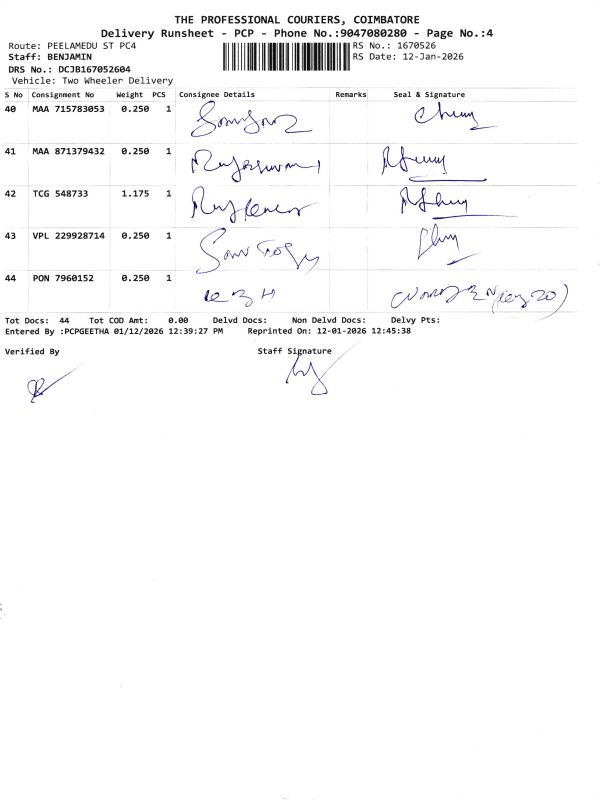 THE PROFESSIONAL COURIERS, COIMBATORE
Delivery Runsheet - PCP - Phone No.:9047080280 - Page No.:4
Route: PEELAMEDU ST PC4 RS No.: 1670526
Staff: BENJAMIN RS Date: 12-Jan-2026
DRS No.: DCJB167052604
Vehicle: Two Wheeler Delivery
S No Consignment No Weight PCS Consignee Details Remarks Seal & Signature
40 MAA 715783053 0.250 1
41 MAA 871379432 0.250 1
42 TCG 548733 1.175 1
43 VPL 229928714 0.250 1
44 PON 7960152 0.250 1
Tot Docs: 44 Tot COD Amt: 0.00 Delvd Docs: Non Delvd Docs: Delvy Pts:
Entered By :PCPGEETHA 01/12/2026 12:39:27 PM Reprinted On: 12-01-2026 12:45:38
Verified By Staff Signature